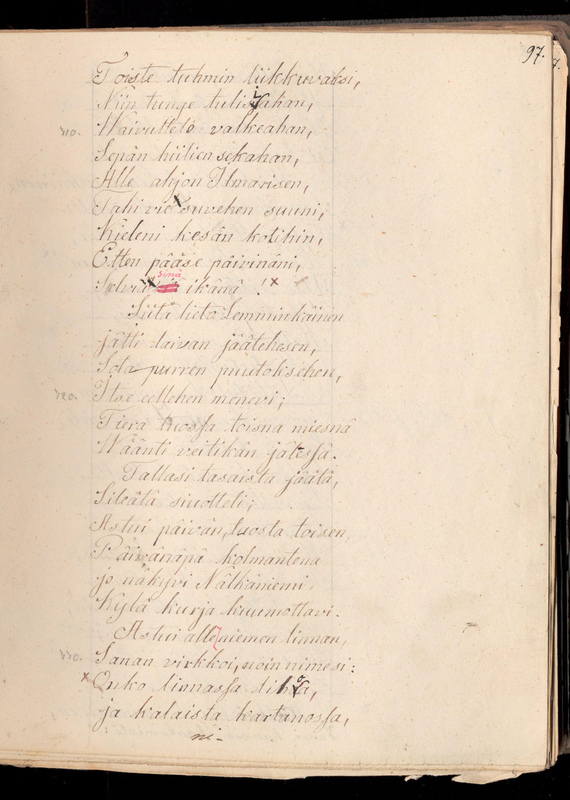 97.
Toiste tuhmin liikkuvaksi,
Niin tunge tulisijahan,
710.
Waivuttele valkeahan,
Sepän hiilien sekahan,
Alle ahjon Ilmarisen,
Tahi vie suvehen suuni,
Kieleni kesän kotihin,
Etten pääse päivinäni,
Selviä sinä ikänä!
Siitä lieto Lemminkäinen
jätti laivan jäätehesen,
Sota purren puutoksehen,
720.
Itse eellehen menevi;
Tiera tuossa toisna miesnä
Wäänti veitikän jälessä.
Tallasi tasaista jäätä,
Sileätä siuotteli;
Astui päivän, tuosta toisen,
Päivänäpä kolmantena
jo näkyvi Nälkäniemi,
Kylä kurja kuumottavi.
Astui alle niemen linnan,
730.
Sanan virkkoi, noin nimesi:
Onko linnassa lihoa,
ja kalaista kartanossa,
ni-